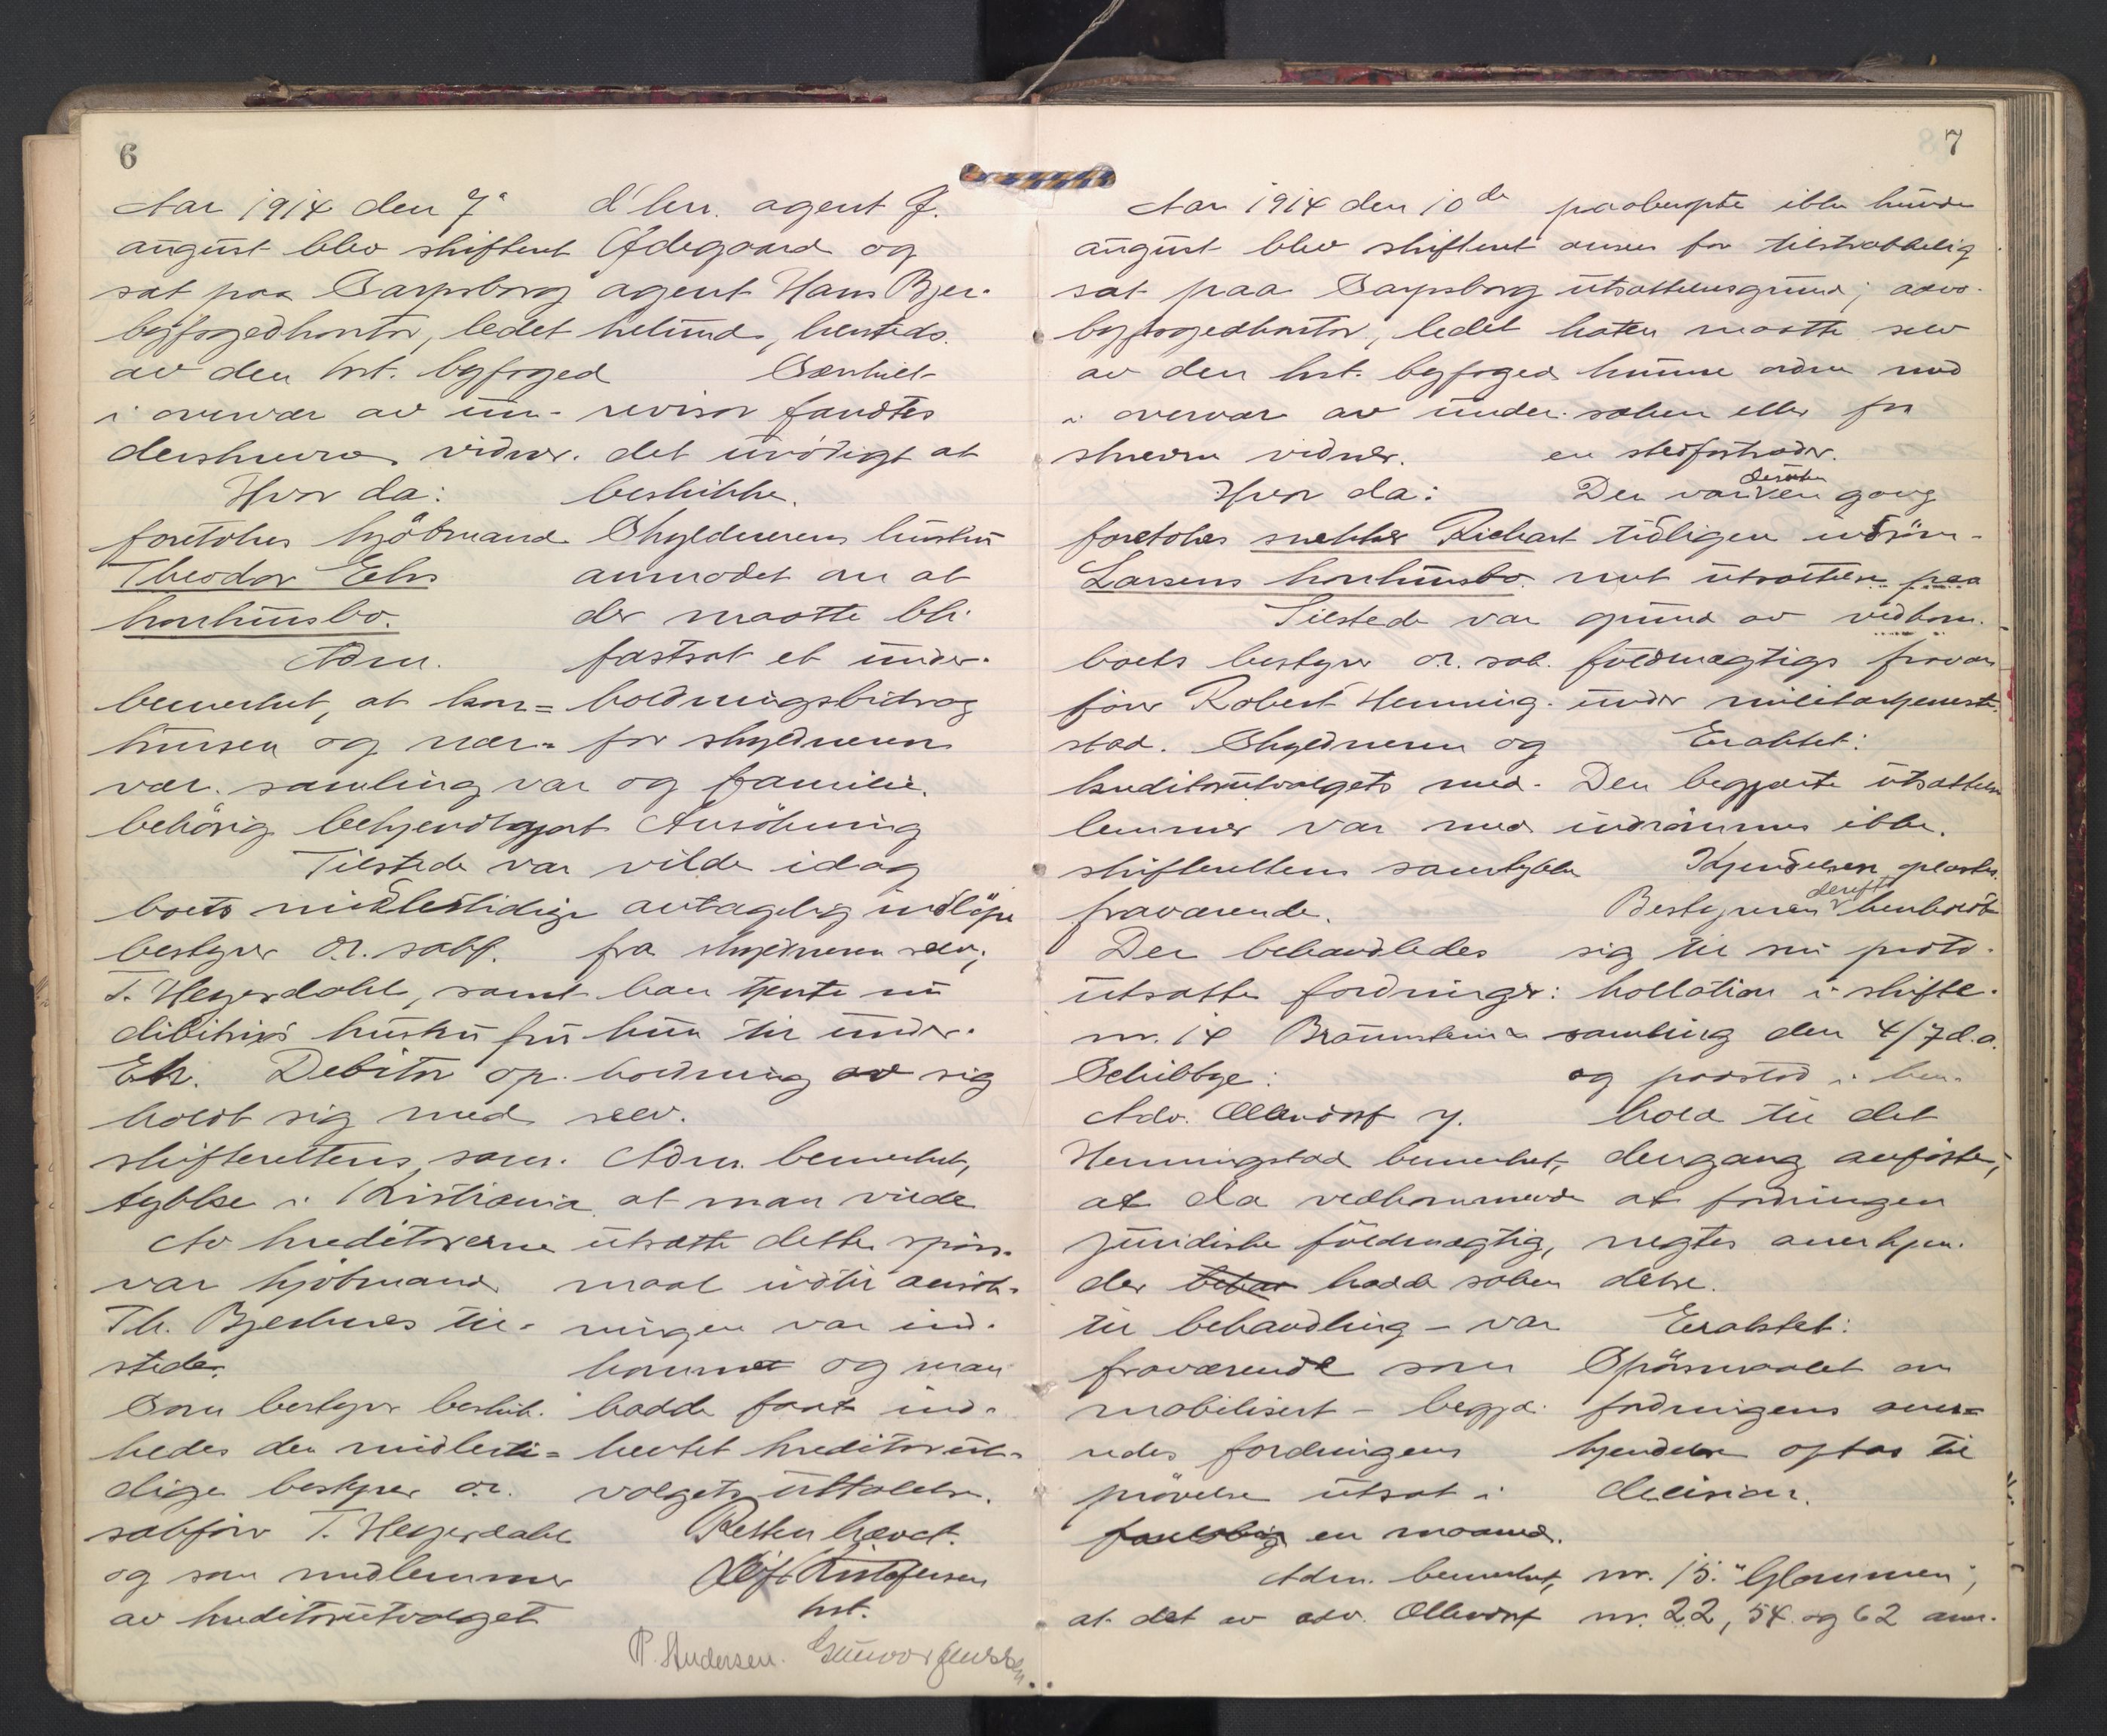 6
Aar 1914 den 7de
august blev skifteret
sat paa Sarpsborg
byfogedkontor, ledet
av den kst. byfoged
i overvær av un-
derskrevne vidner.
Hvor da:
foretokes kjöbmand
Theodor Ehrs
konkursbo.
Adm.
bemerket, at kon-
kursen og nær-
vær. samling var
behörig bekjendtgjort
Tilstede var
boets midlertidige
bestyrer o.r. sakf.
T. Heyerdahl, samt
debitors hustru fru
Ehr. Debitor op-
holdt sig med
skifterettens sam-
tykke i Kristiania.
Av kreditorerne
var kjöbmand
Th. Bjerknes til-
stede.
Som bestyrer beskik-
kedes den midlerti-
dige bestyrer o.r.
sakförer T. Heyerdahl
og som medlemmer
av kreditorutvalget
d'hrr. agent J.
Ödegaard og
agent Hans Bjer-
kelund, hersteds.
Særskilt
revisor fandtes
det unödigt at
beskikke.
Skyldnerens hustru
anmodet om at
der maatte bli
fastsat et under-
holdningsbidrag
for skyldneren
og familie.
Ansökning
vilde idag
antagelig indlöpe
fra skyldneren selv;
han tjente nu
kun til under-
holdning av sig
selv.
Adm. bemerket,
at man vilde
utsætte dette spörs-
maal indtil ansök-
ningen var ind-
kommet og man
hadde faat ind-
hentet kreditorut-
valgets uttalelse.
Retten hævet.
kst.
P. Andersen. Gunvor Jenssen.
7
Aar 1914 den 10de
august blev skifteret
sat paa Sarpsborg
byfogedkontor, ledet
av den kst. byfoged
i overvær av under-
skrevne vidner.
Hvor da:
foretokes snekker Richart
Larsens konkursbo.
Tilstede var
boets bestyrer o.r. sak-
förer Robert Henning-
stad. Skyldneren og
kreditorutvalgets med-
lemmer var med
skifterettens samtykke
fraværende.
Der behandledes
utsatte fordringer:
nr. 14 Braunstein &
Schibbye:
Adv. Ollendorf v.
Henningstad bemerket,
at da vedkommende
juridiske fuldmægtig,
der hadde saken
til behandling – var
fraværende som
mobilisert – begjæ-
redes fordringens
prövelse utsat i
en maaned.
Adm. bemerket,
at det av adv. Ollendorf
paaberopte ikke kunde
ansees for tilstrækkelig
utsættelsesgrund; advo-
katen maatte selv
kunne ordne med
saken eller faa
en stedfortræder.
Der var desuten en gang
tidligere indröm-
met utsættelse paa
grund av vedkom.
fuldmægtigs fravær
under militærtjeneste.
Eraktet:
Den begjærte utsættelse
indrömmes ikke.
Kjendelsen oplæstes.
Bestyreren derefter henholdt
sig til sin proto-
kollation i skifte-
samling den 4/7 d.a.
og paastod i hen-
hold til det
dengang anförte,
at fordringen
negtes anerkjen-
delse.
Eraktet:
Spörsmaalet om
fordringens aner-
kjendelse optas til
decision.
nr. 15. "Glommen",
nr. 22, 54 og 62 aner-